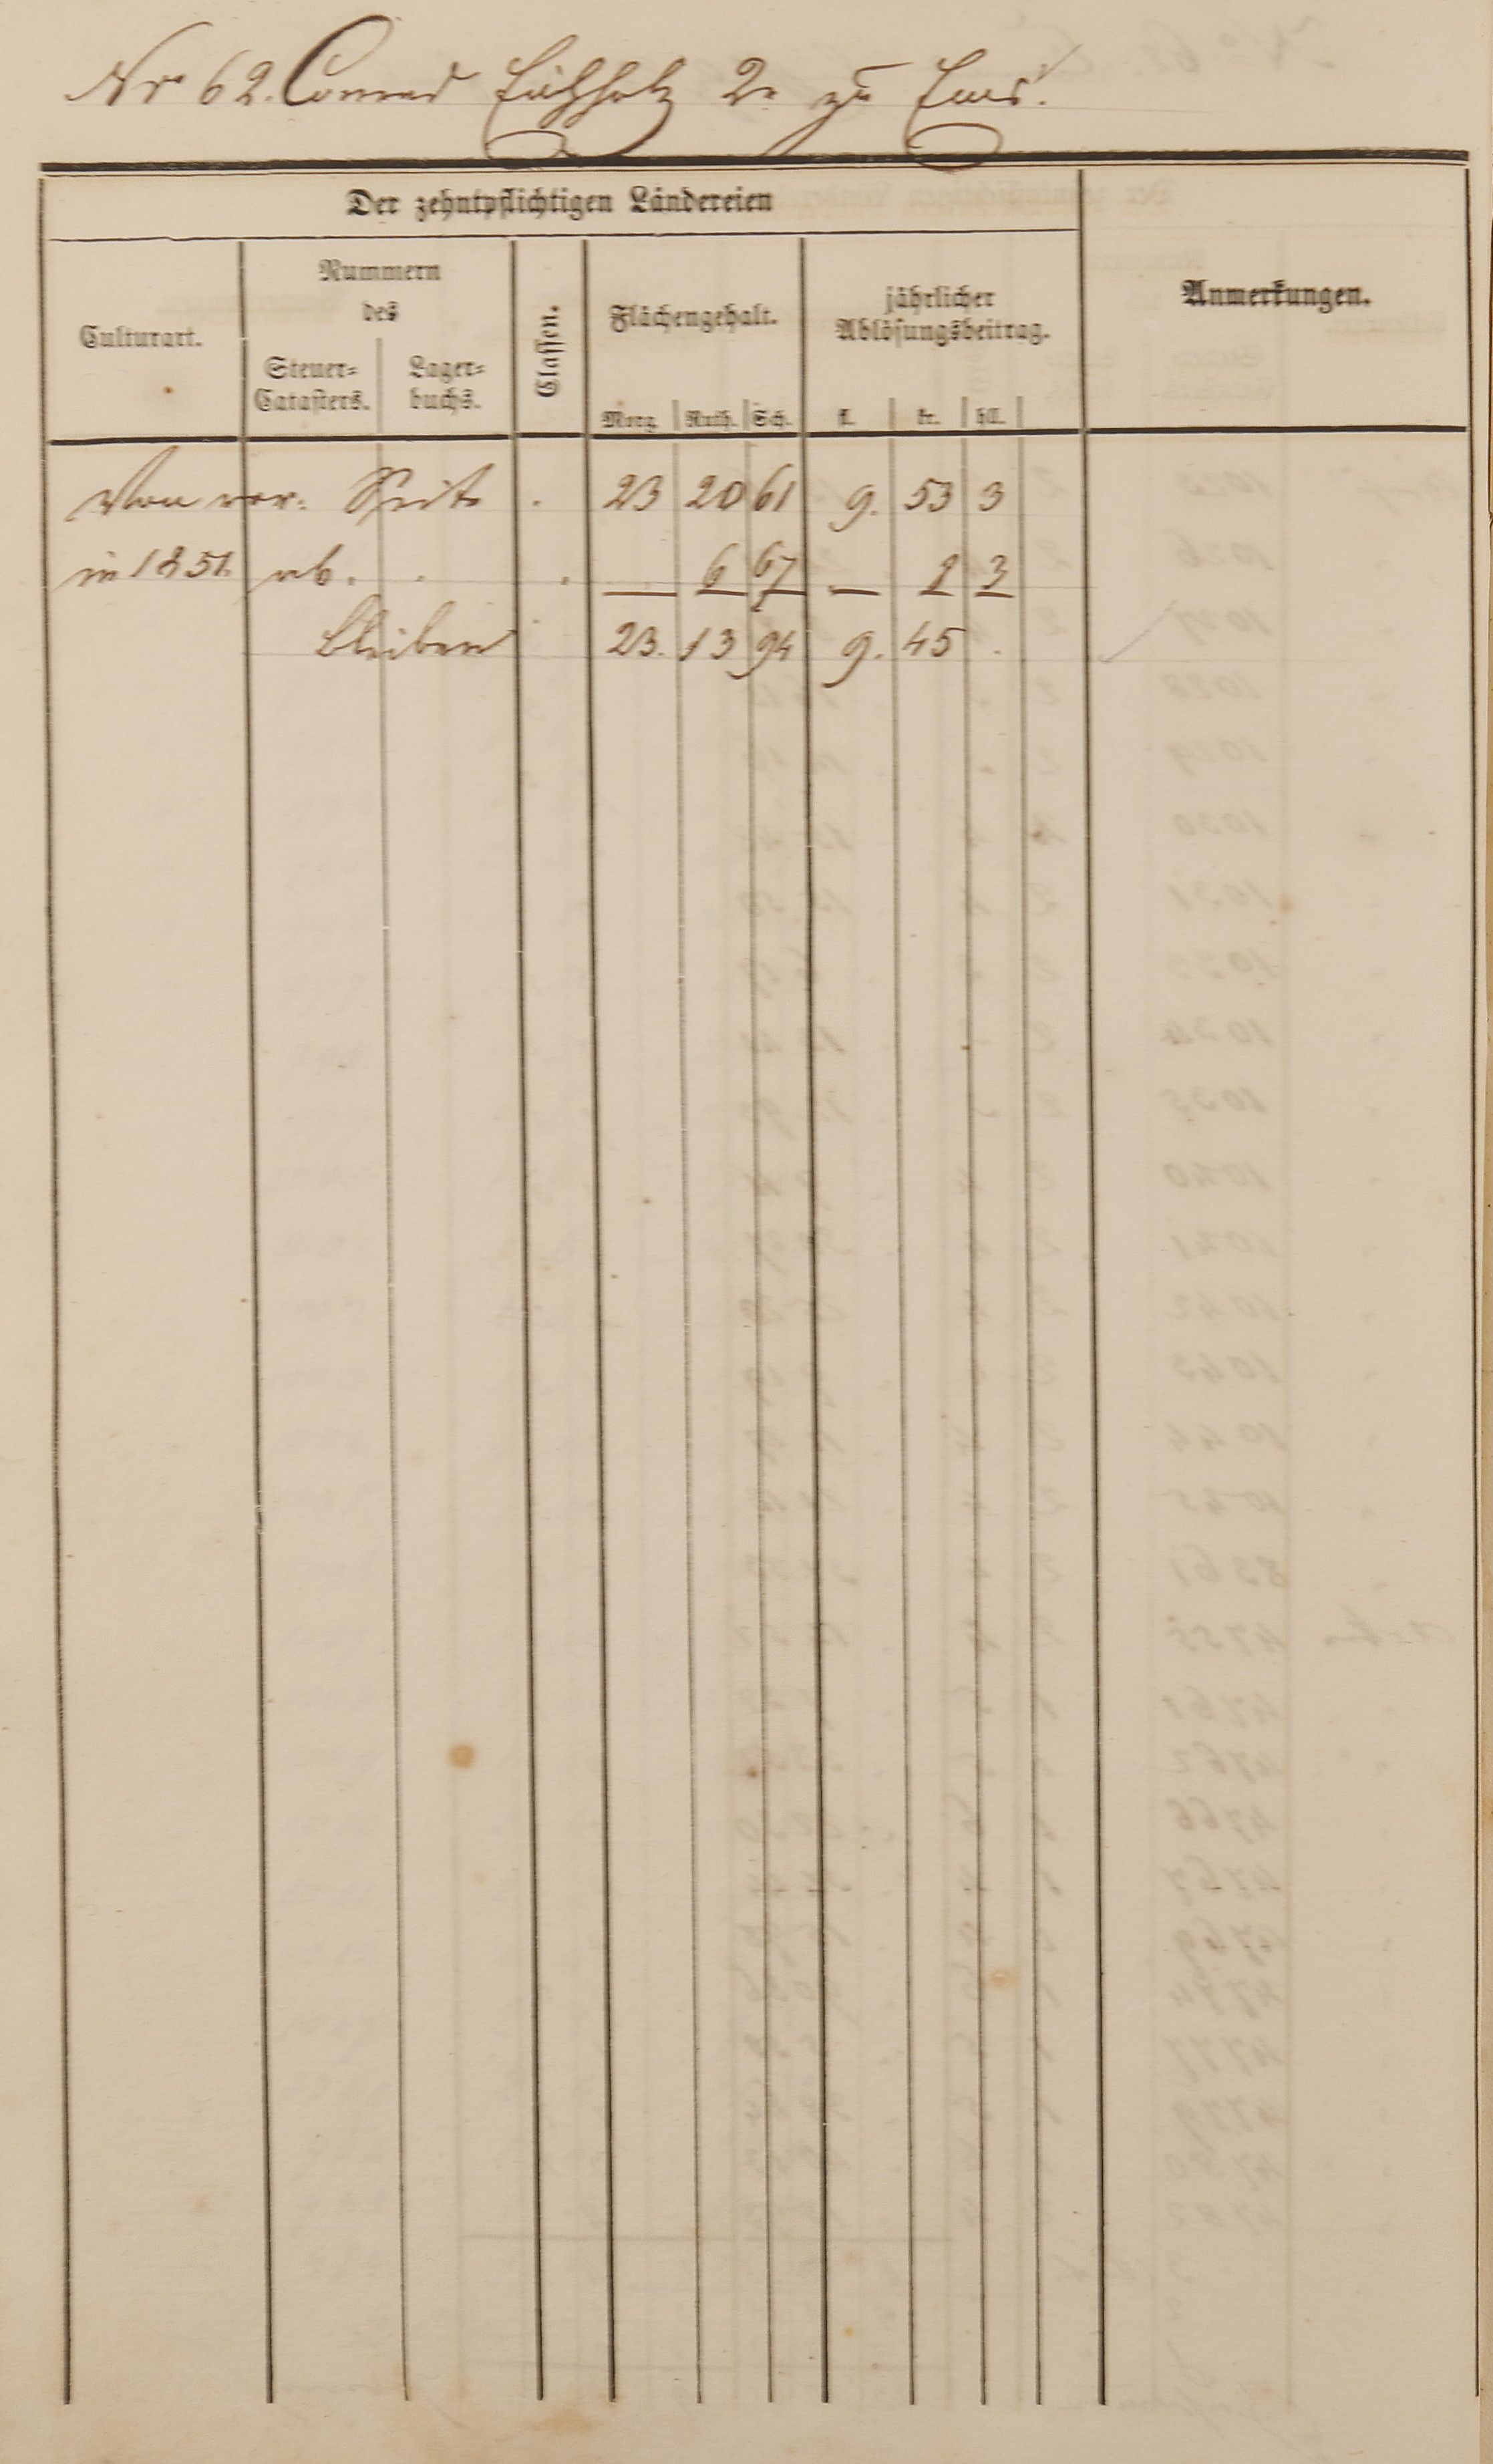 Nr 62. Conrad Eichholz 2r zu Ems.
Der zehntpflichtigen Ländereien
Culturart.
Nummern
des
Steuer-
Catasters.
Lager-
buchs.
Classen.
Flächengehalt.
Morg. Ruth. Sch.
jährlicher
Ablösungsbeitrag.
fl. kr. hll.
Anmerkungen.
Von vor. Seite . 23 20 61 9. 53 3
in 1851. ab. . . — 6 67 — 8 3
bleiben 23. 13 94 9. 45 .